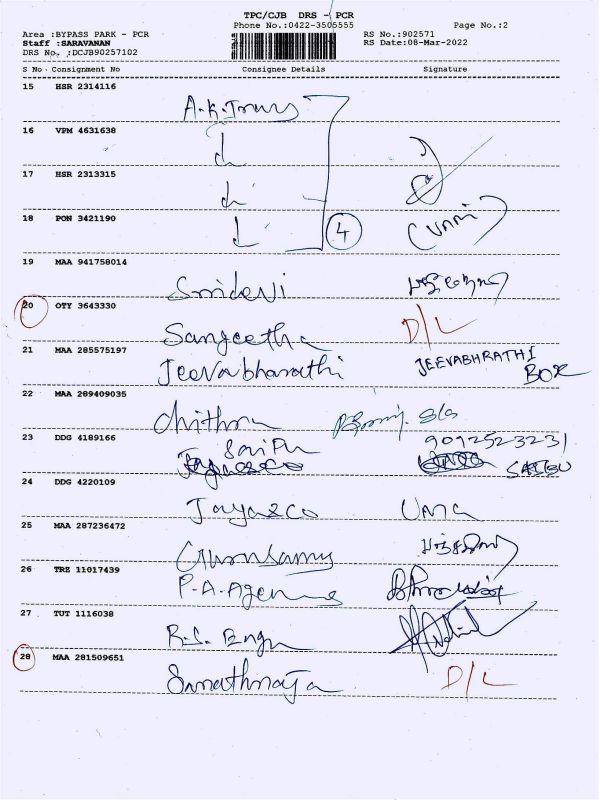 TPC/CJB DRS - PCR
Phone No.:0422-3505555 Page No.:2
Area :BYPASS PARK - PCR RS No.:902571
Staff :SARAVANAN RS Date:08-Mar-2022
DRS No. :DCJB90257102
S No Consignment No Consignee Details Signature
15 HSR 2314116
A.K.
16 VPM 4631638
17 HSR 2313315
18 PON 3421190
4
19 MAA 941758014
Sridevi
20 OTY 3643330
Sangeetha D/L
21 MAA 285575197
Jeevabharathi JEEVABHRATHI
BOX
22 MAA 289409035
Chithra
23 DDG 4189166 9092523231
24 DDG 4220109
Jaya & Co Uma
25 MAA 287236472
26 TRZ 11017439
P.A.
27 TUT 1116038
R.S. Engn
28 MAA 281509651
D/L